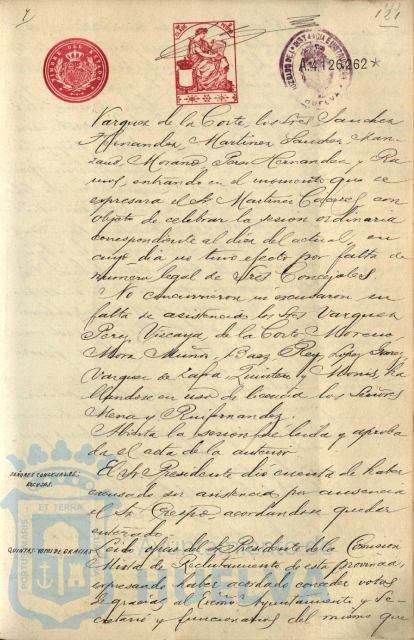 121
TIMBRE DEL ESTADO
A.4.126.262*
HUELVA
Vazquez de la Corte, los Sres Sanchez
Hernandez, Martinez Sanchez, Man-
zano, Morano, Perez Hernandez y Ra-
mos, entrando en el momento que se
expresara el Sr Martinez con
objeto de celebrar la sesion ordinaria
correspondiente al dia del actual, en
cuyo dia no tuvo efecto por falta de
numero legal de Sres Concejales.
No concurrieron ni escusaron su
falta de asistencia los Sres Vazquez
Perez, Vizcaya, de la Corte, Moreno,
Mora, Muñoz, Baez, Rey, Lopez
Vazquez de Zafra, Quintero y ha
llandose en uso de licencia los Señores
Mena y Ruifernandez.
Abierta la sesion fue leida y aproba
da el acta de la anterior.
SEÑORES CONCEJALES:
ESCUSAS.
El Sr Presidente dió cuenta de haber
escusado su asistencia por ausencia
el Sr Crespo, acordandose quedar
enterado.
QUINTAS: VOTOS DE GRACIAS
Leido oficio del Sr Presidente de la Comision
Mixta de Reclutamiento de esta provincia,
expresando haber acordado conceder votos
de gracias al Excmo Ayuntamiento y Se-
cretario y funcionarios del mismo que
PORTUS MARIS ET TERRAE
Ayuntamiento de
HUELVA